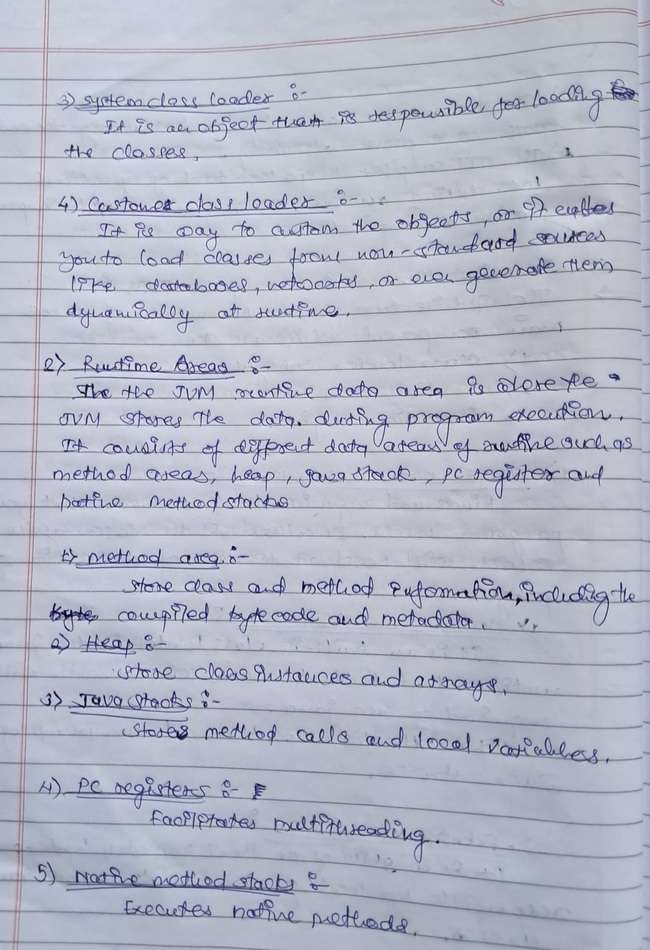 3) System class loader :-
It is an object that is responsible for loading
the classes.
4) Customer class loader :-
It is way to custom the objects, or it enables
you to load classes from non-standard sources
like databases, networks, or even generate them
dynamically at runtime.
2) Runtime Areas :-
the JVM runtime data area is
JVM stores the data. during program execution.
It consists of different data areas of runtime such as
method areas, heap, java stack, PC register and
native method stacks
1) method area :-
store class and method information, including the
compiled byte code and metadata.
2) Heap :-
store class instances and arrays.
3) Java stacks :-
Stores method calls and local variables.
4) PC registers :-
Facilitates multithreading.
5) Native method stacks :-
Executes native methods.